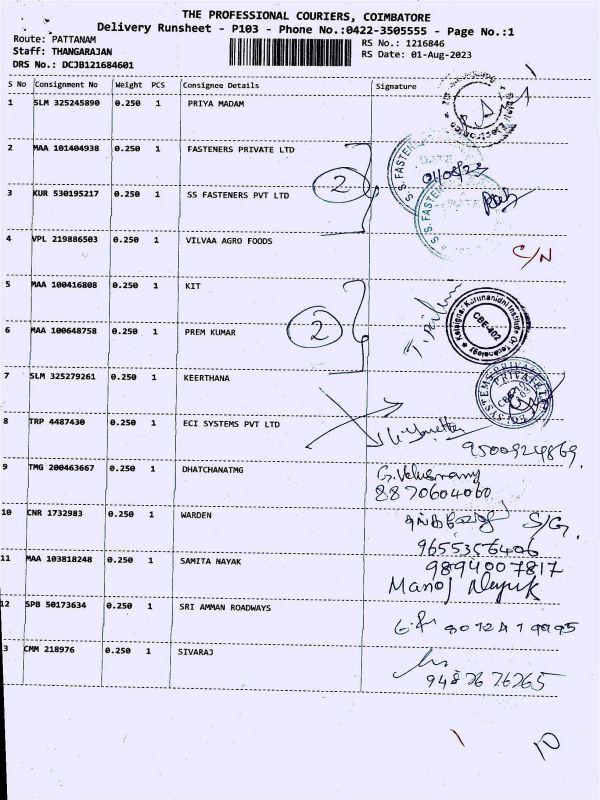 THE PROFESSIONAL COURIERS, COIMBATORE
Delivery Runsheet - P103 - Phone No.:0422-3505555 - Page No.:1
Route: PATTANAM
Staff: THANGARAJAN
DRS No.: DCJB121684601
RS No.: 1216846
RS Date: 01-Aug-2023
S No Consignment No Weight PCS Consignee Details Signature
1 SLM 325245890 0.250 1 PRIYA MADAM
2 MAA 101404938 0.250 1 FASTENERS PRIVATE LTD
DATE
01/08/23
2
3 KUR 530195217 0.250 1 SS FASTENERS PVT LTD
S S FASTEN
4 VPL 219886503 0.250 1 VILVAA AGRO FOODS C/N
5 MAA 100416808 0.250 1 KIT
Kalaignar Karunanidhi Institute Of Technology
CBE-402
2
6 MAA 100648758 0.250 1 PREM KUMAR
7 SLM 325279261 0.250 1 KEERTHANA
SYSTEMS PRIVATE LTD
8 TRP 4487430 0.250 1 ECI SYSTEMS PVT LTD
9500924869.
9 TMG 200463667 0.250 1 DHATCHANATMG
G. Velusamy
8870604060
10 CNR 1732983 0.250 1 WARDEN
S/G.
9655356406
11 MAA 103818248 0.250 1 SAMITA NAYAK
9894007817
Manoj Nayak
12 SPB 50173634 0.250 1 SRI AMMAN ROADWAYS
3 CMM 218976 0.250 1 SIVARAJ
9487676765
10